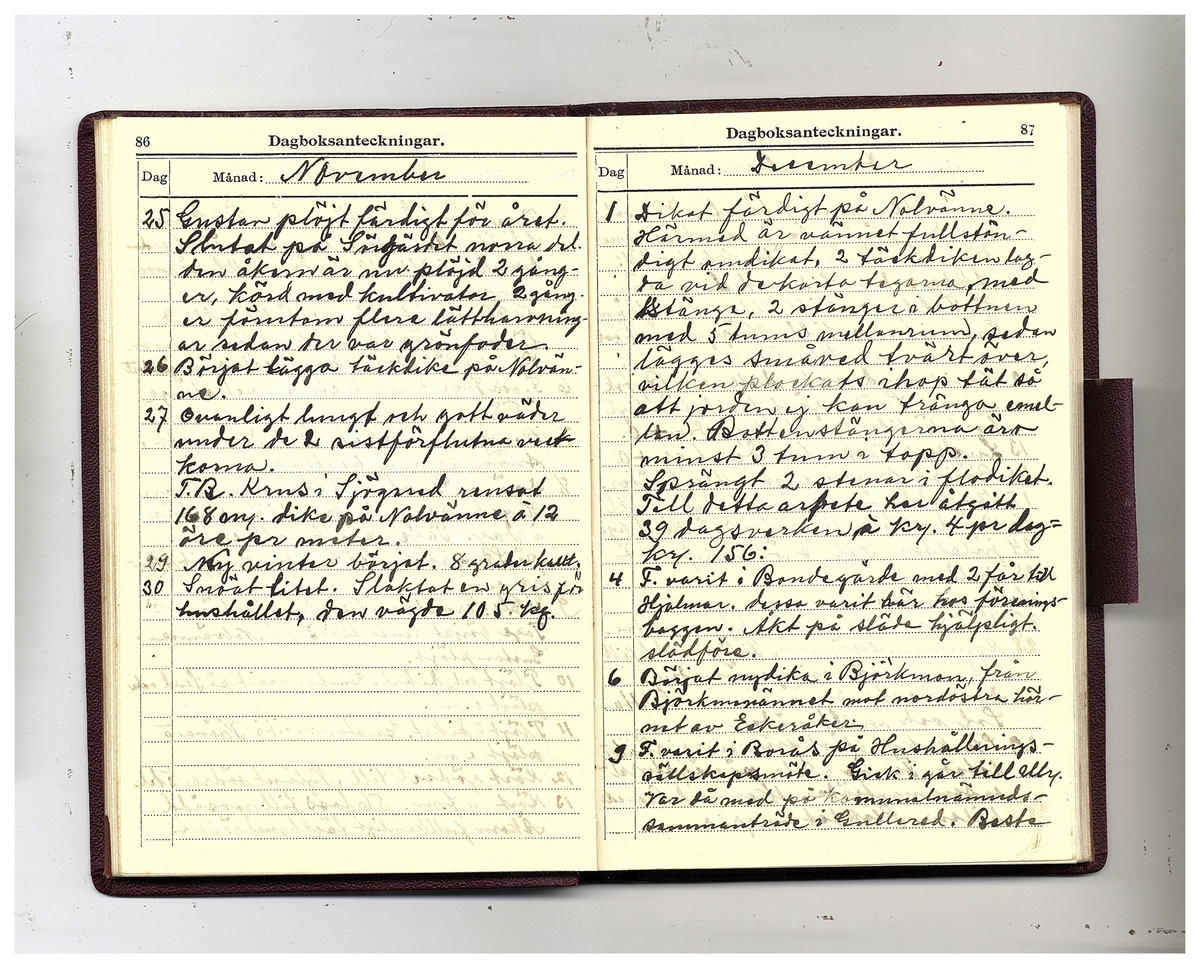 86 Dagboksanteckningar.
Dag Månad: November
25 Gustav plöjt färdigt för året.
Slutat på Sörgärdet norra del.
den åkern är nu plöjd 2 gång-
er, körd med kultivator, 2 gång-
er förutom flera lättharvning-
ar sedan der var grönfoder.
26 Börjat lägga täckdike på Nolvän-
ne.
27 Ovanligt lungt och gott väder
under de 2 sistförflutna vec-
korna.
T.B. Krus i Sjögared rensat
168 m. dike på Nolvänne à 12
öre pr meter.
29 Ny vinter börjat. 8 grader kallt.
30 Snöat litet. Slaktat en gris för
hushållet, den vägde 105 kg.
87 Dagboksanteckningar.
Dag Månad: December
1 Dikat färdigt på Nolvänne.
Härmed är vännet fullstän-
digt omdikat, 2 täckdiken lag-
da vid de korta tegarna, med
stänge, 2 stänger i bottnen
med 5 tums mellanrum, sedan
lägges småved tvärt över,
vilken plockats ihop tät så
att jorden ej kan tränga emel-
lan. Bottenstängerna äro
minst 3 tum i topp.
Sprängt 2 stenar i flodiket.
Till detta arbete har åtgått
39 dagsverken à kr. 4 pr dag=
kr. 156:
4 F. varit i Bondegärde med 2 får till
Hjalmar. dessa varit här hos förenings-
baggen. Åkt på släde hjälpligt.
slädföre.
6 Börjat nydika i Björkmon, från
Björkmovännet mot nordöstra hör-
net av Ekeråker
9 F. varit i Borås på Hushållnings-
sällskapsmöte. Gick i går till Ully.
Var då med på kommunalnämnds-
sammanträde i Gullered. Beste